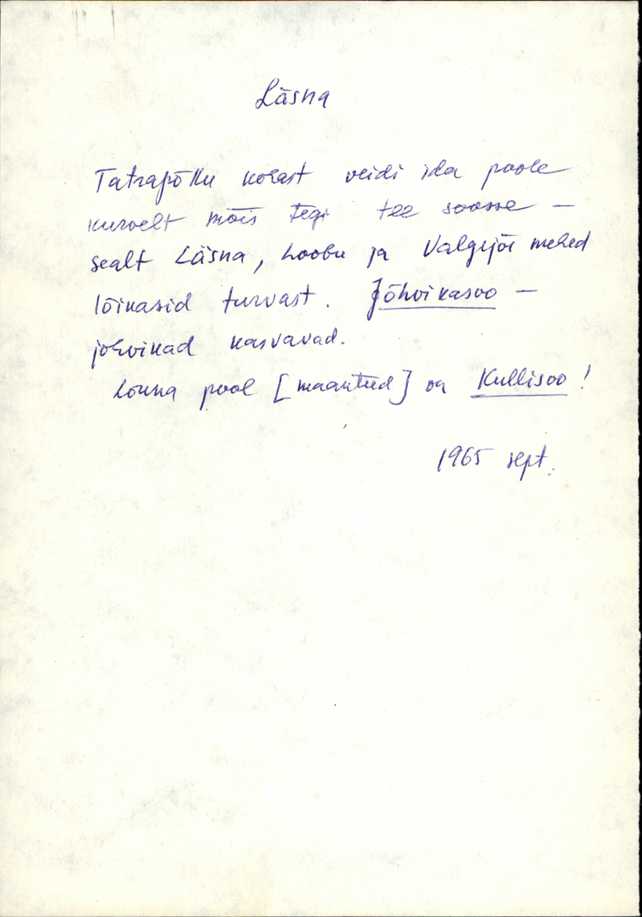 Läsna
Tatrapõllu kohast veidi ida poole
kurvelt mõis tegi tee soosse –
sealt Läsna, Loobu ja Valgejõe mehed
lõikasid turvast. Jõhvikasoo –
jõhvikad kasvavad.
Lõuna pool [maanteed] on Kullisoo!
1965 sept.